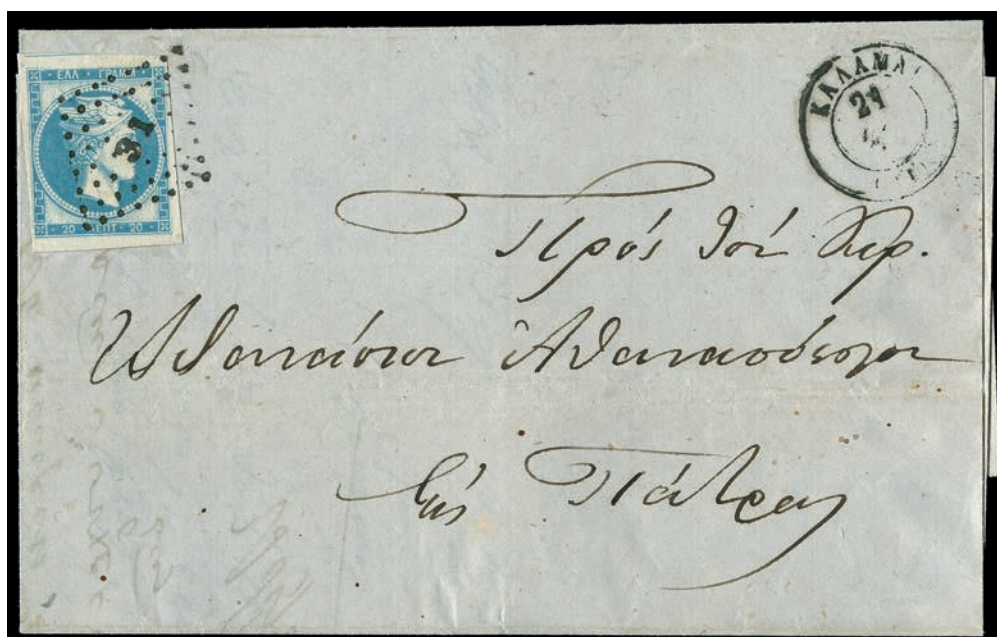 ΕΛΛ. ΓΡΑΜΜ.
31
20 ΛΕΠΤ. 20
ΚΑΛΑΜΑΙ
21
Πρὸς τὸν Κύρ.
Ἀθανάσιον Ἀθανασόπουλον
Εἰς Πάτρας